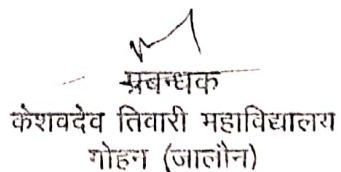 प्रबन्धक
केशवदेव तिवारी महाविद्यालय
गोहन (जालौन)